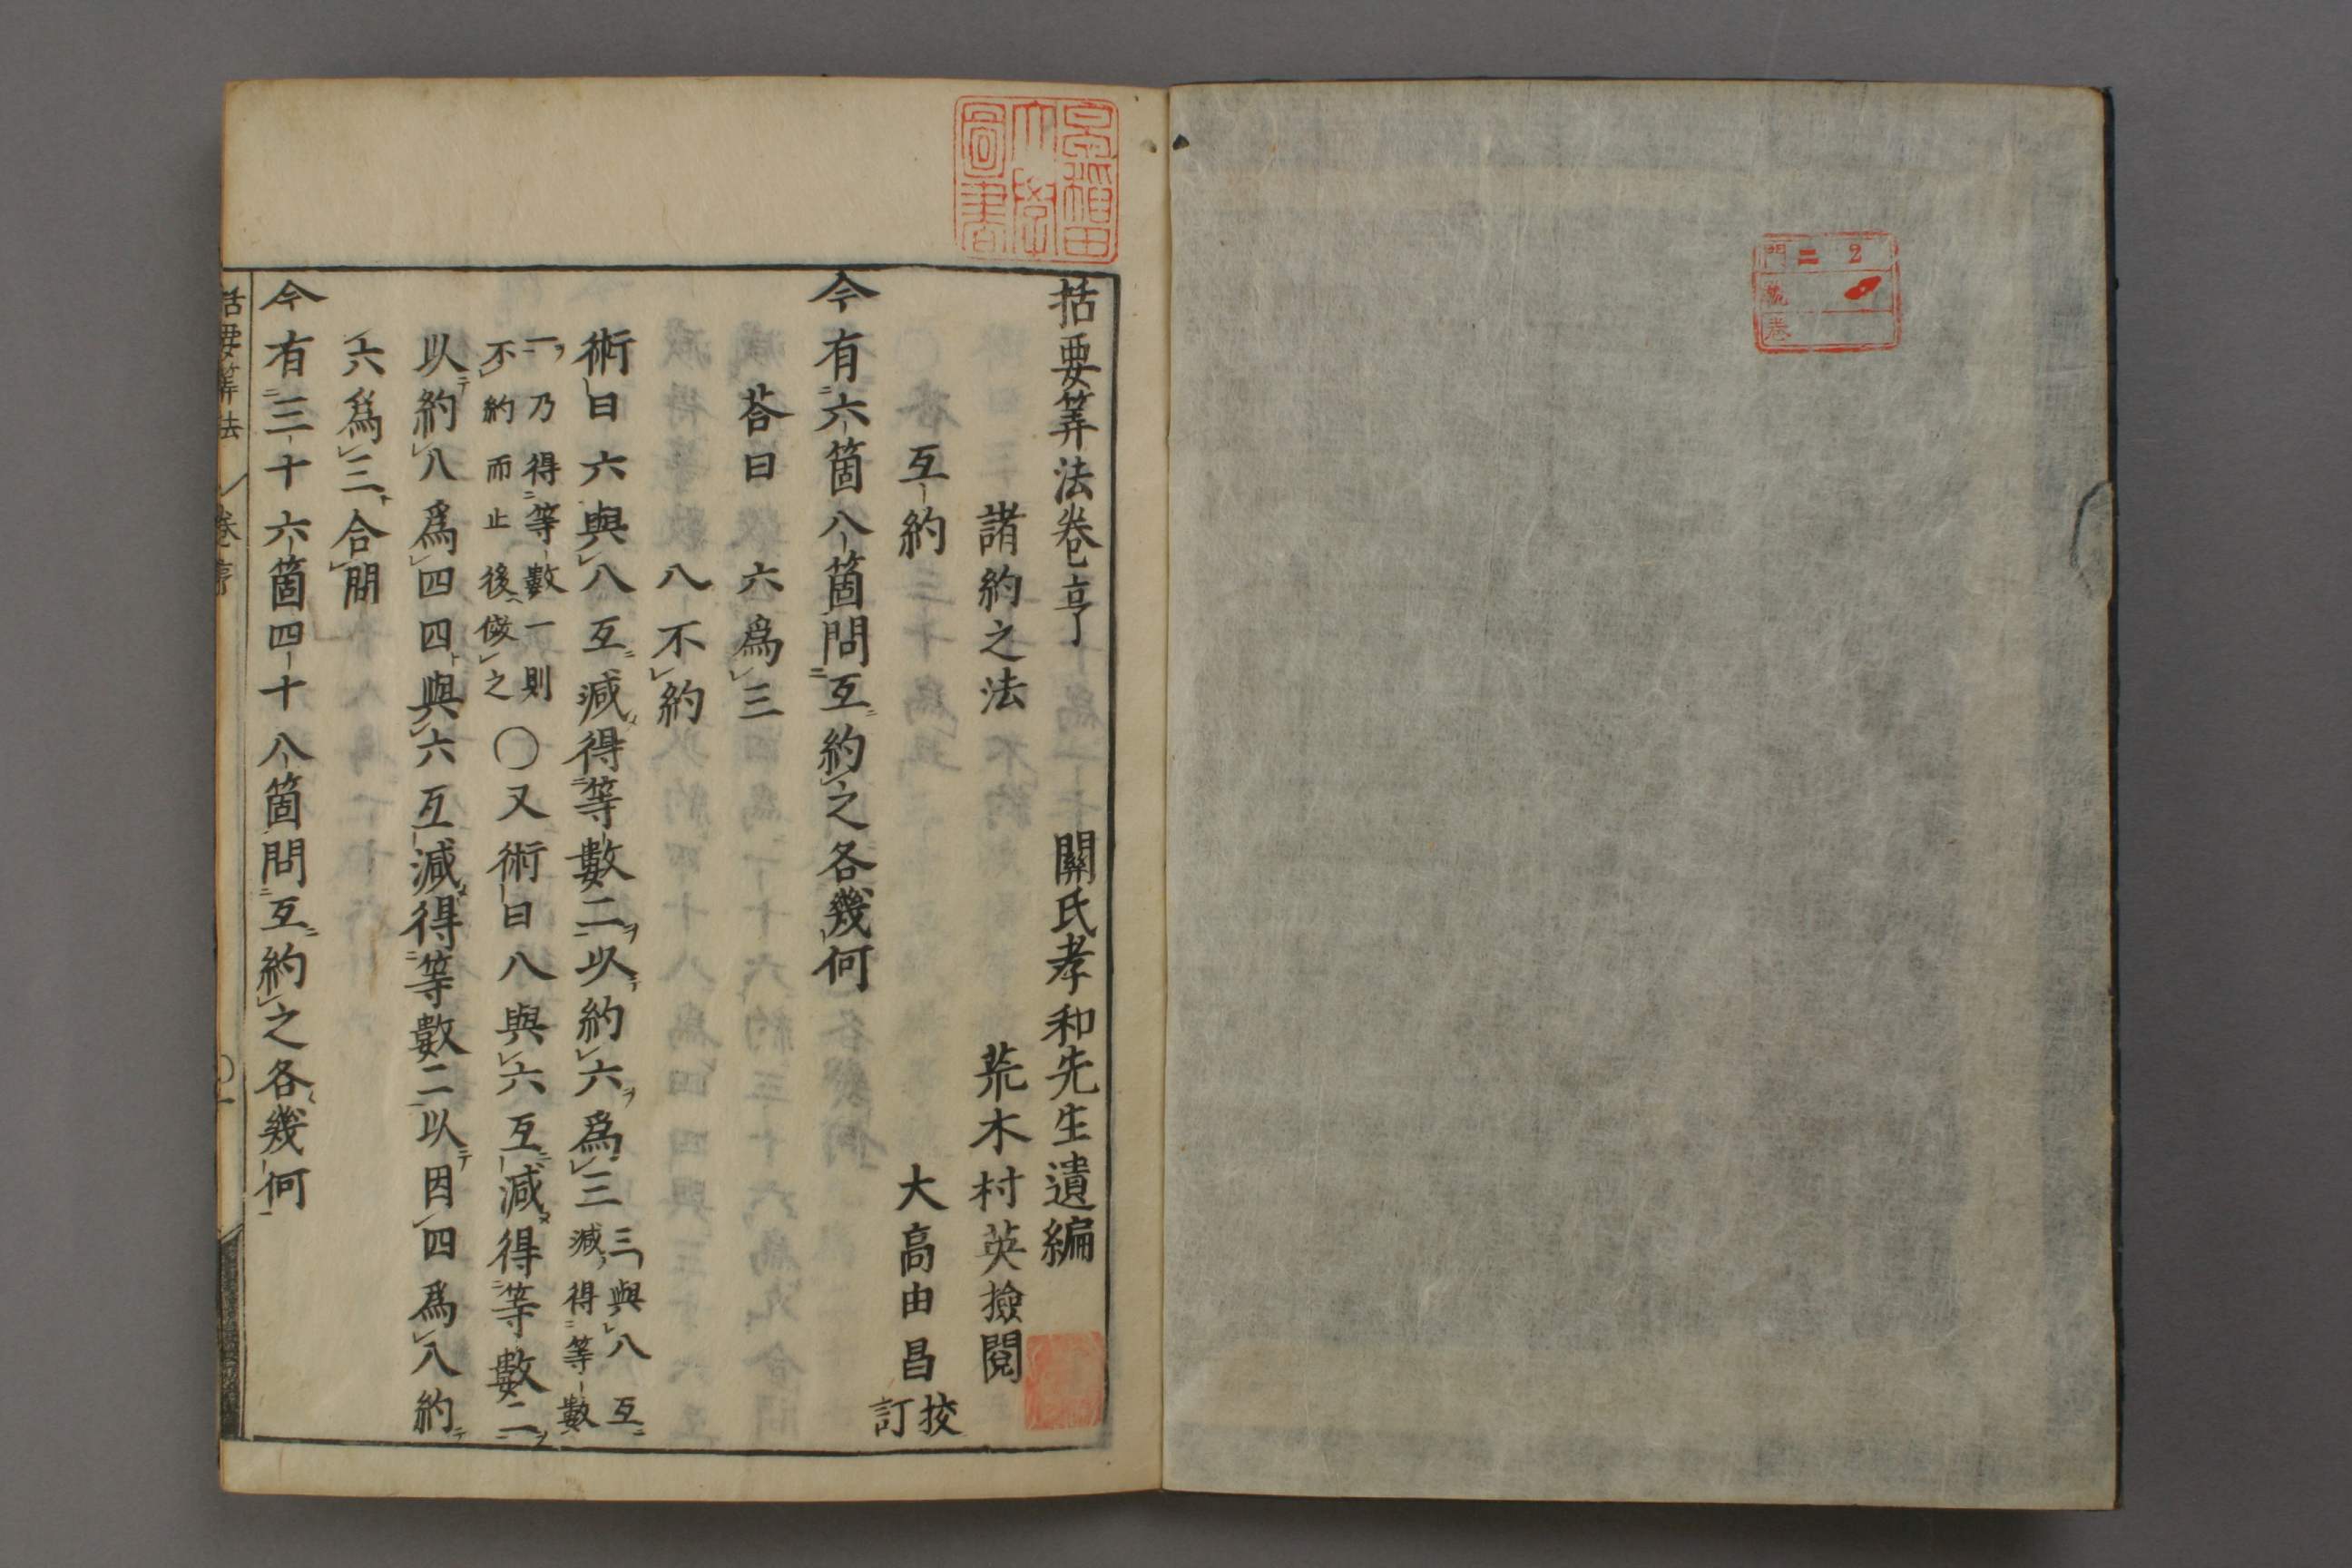 門 二 2
號
巻
早稲田
大學
圖書
括要筭法巻亨 關氏孝和先生遺編
諸約之法 荒木村英撿閲
互約 大高由昌校訂
今有六箇八箇問互約之各幾何
荅曰 六爲三
八不約
術曰六與八互減得等數二以約六爲三 三與八互減得等數
一乃得等數一則不約而止後倣之 〇又術曰八與六互減得等數二
以約八爲四四與六互減得等數二以因四爲八約
六爲三合問
今有三十六箇四十八箇問互約之各幾何
括要筭法 巻亨 〇一